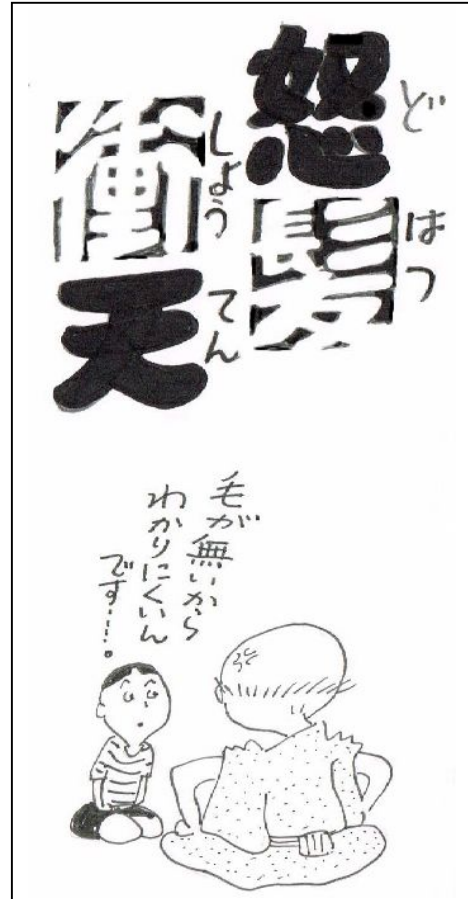 怒髪
どはつ
衝天
しょうてん
毛が無いから
わかりにくいん
です…。